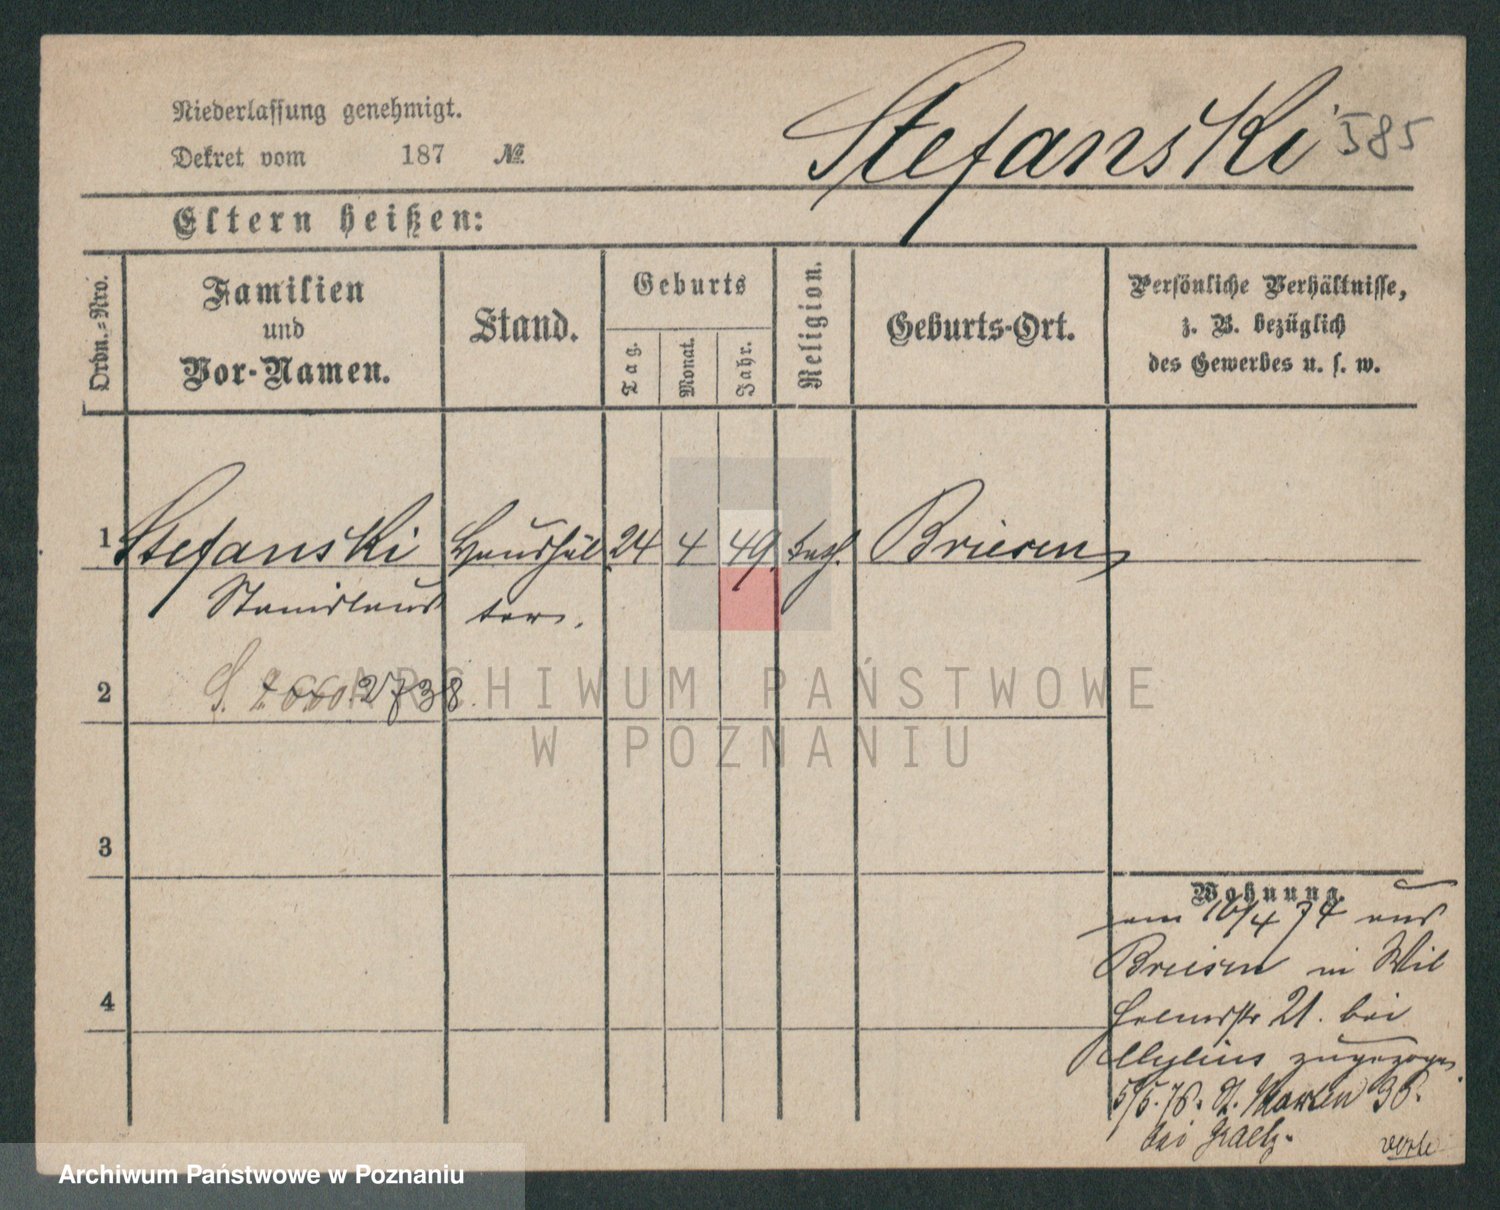 Niederlassung genehmigt.
Dekret vom 187 №
Stefanski 585
Eltern heißen:
Ordn.=Nro.
Familien
und
Vor-Namen.
Stand.
Geburts
Tag.
Monat.
Jahr.
Religion.
Geburts-Ort.
Persönliche Verhältnisse,
z. B. bezüglich
des Gewerbes u. s. w.
1 Stefanski Haushäl 24 4 49. kath. Briesen
Stanislaus ter.
2 2660. 2738
ARCHIWUM PAŃSTWOWE
W POZNANIU
3
Wohnung.
am 16/4 74 aus
Briesen in Wil
helmstr 21. bei
Mylius zugezogen
4
5/5. 76. St. Martin 36.
bei
verte
Archiwum Państwowe w Poznaniu